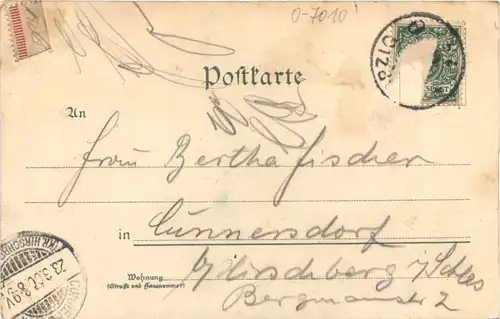 0-7010
Postkarte
An
Frau Bertha Fischer
in Cunnersdorf
Wohnung
(Straße und Hausnummer)
b/Hirschberg i/Schles
Bergmannstr 2
(KR. HIRSCHB